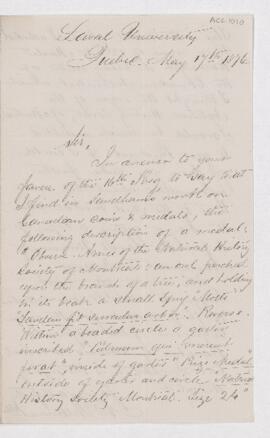 ACC. 1010
Laval University
Quebec - May 17th 1876
Sir,
In answer to your
favor of the 16th I beg to say that
I find in Sandham's work on
Canadian coins & medals, the
following description of a medal:
"Obverse - Arms of the Natural History
Society of Montreal: an owl perched
upon the branch of a tree, and holding
in its beak a small sprig Motto
Reverse.
Within a beaded circle a garter
inscribed "Palmam qui meruit
ferat", inside of garter "Prize Medal"
outside of garter and circle "Natural
History Society Montreal. Size 24"